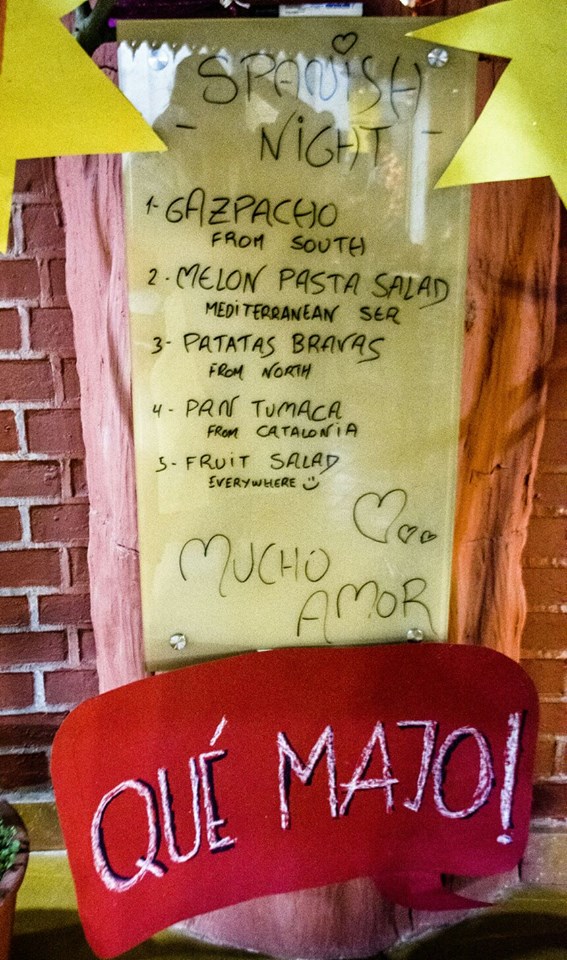 SPANISH
- NIGHT -
1- GAZPACHO
FROM SOUTH
2- MELON PASTA SALAD
MEDITERRANEAN SER
3- PATATAS BRAVAS
FROM NORTH
4- PAN TUMACA
FROM CATALONIA
5- FRUIT SALAD
EVERYWHERE
MUCHO
AMOR
QUÉ MAJO!